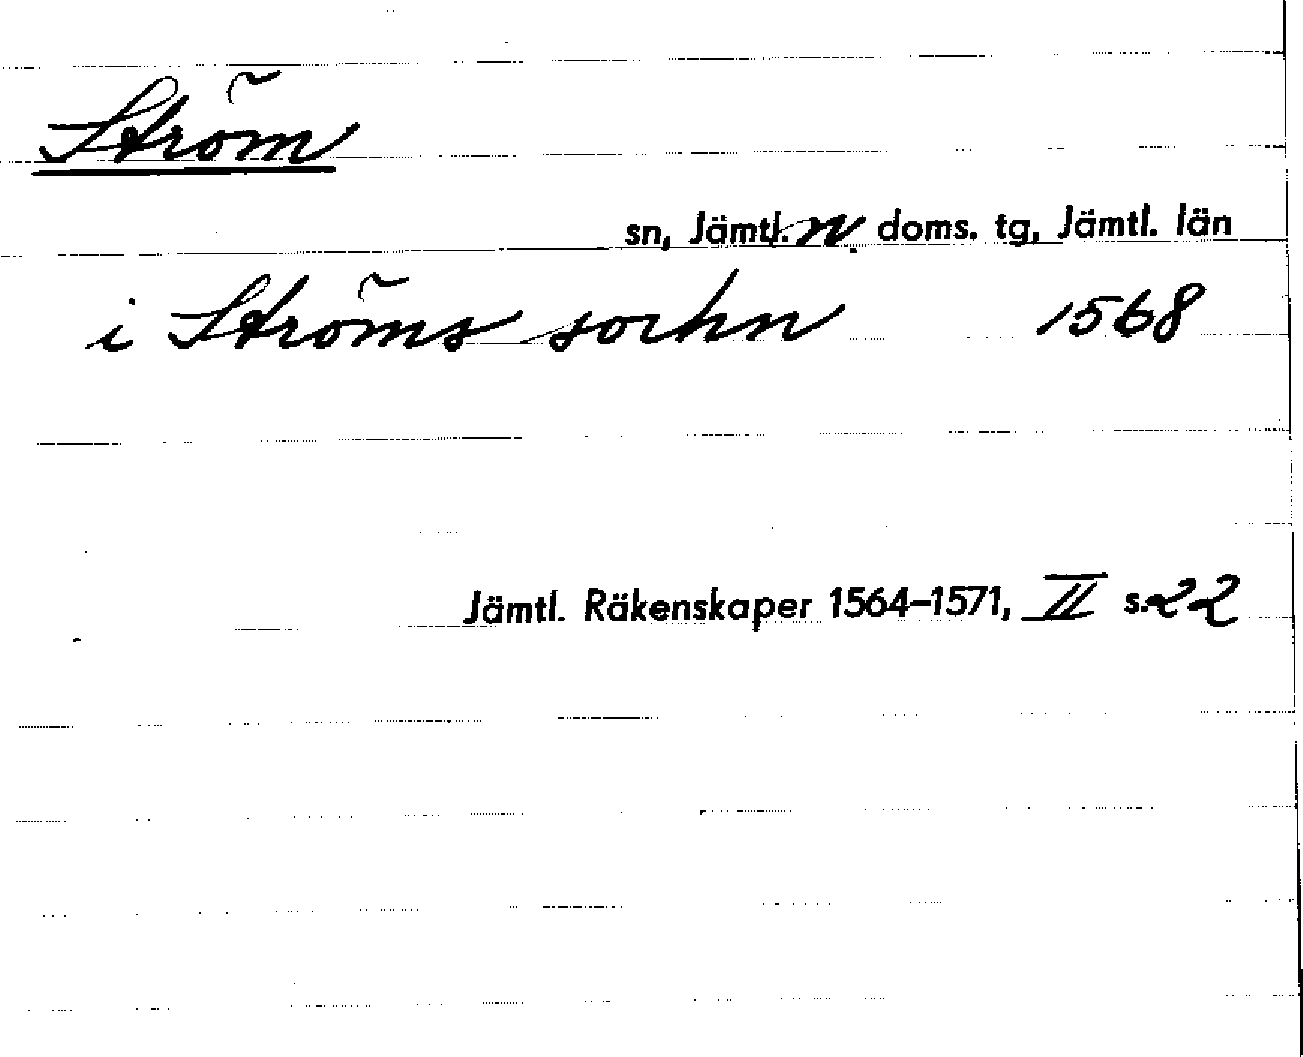 Ström
sn, Jämtl. n. doms. tg, Jämtl. län
i Ströms sochn 1568
Jämtl. Räkenskaper 1564–1571, II s. 22